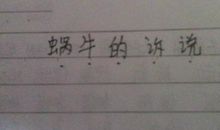 蜗牛的诉说